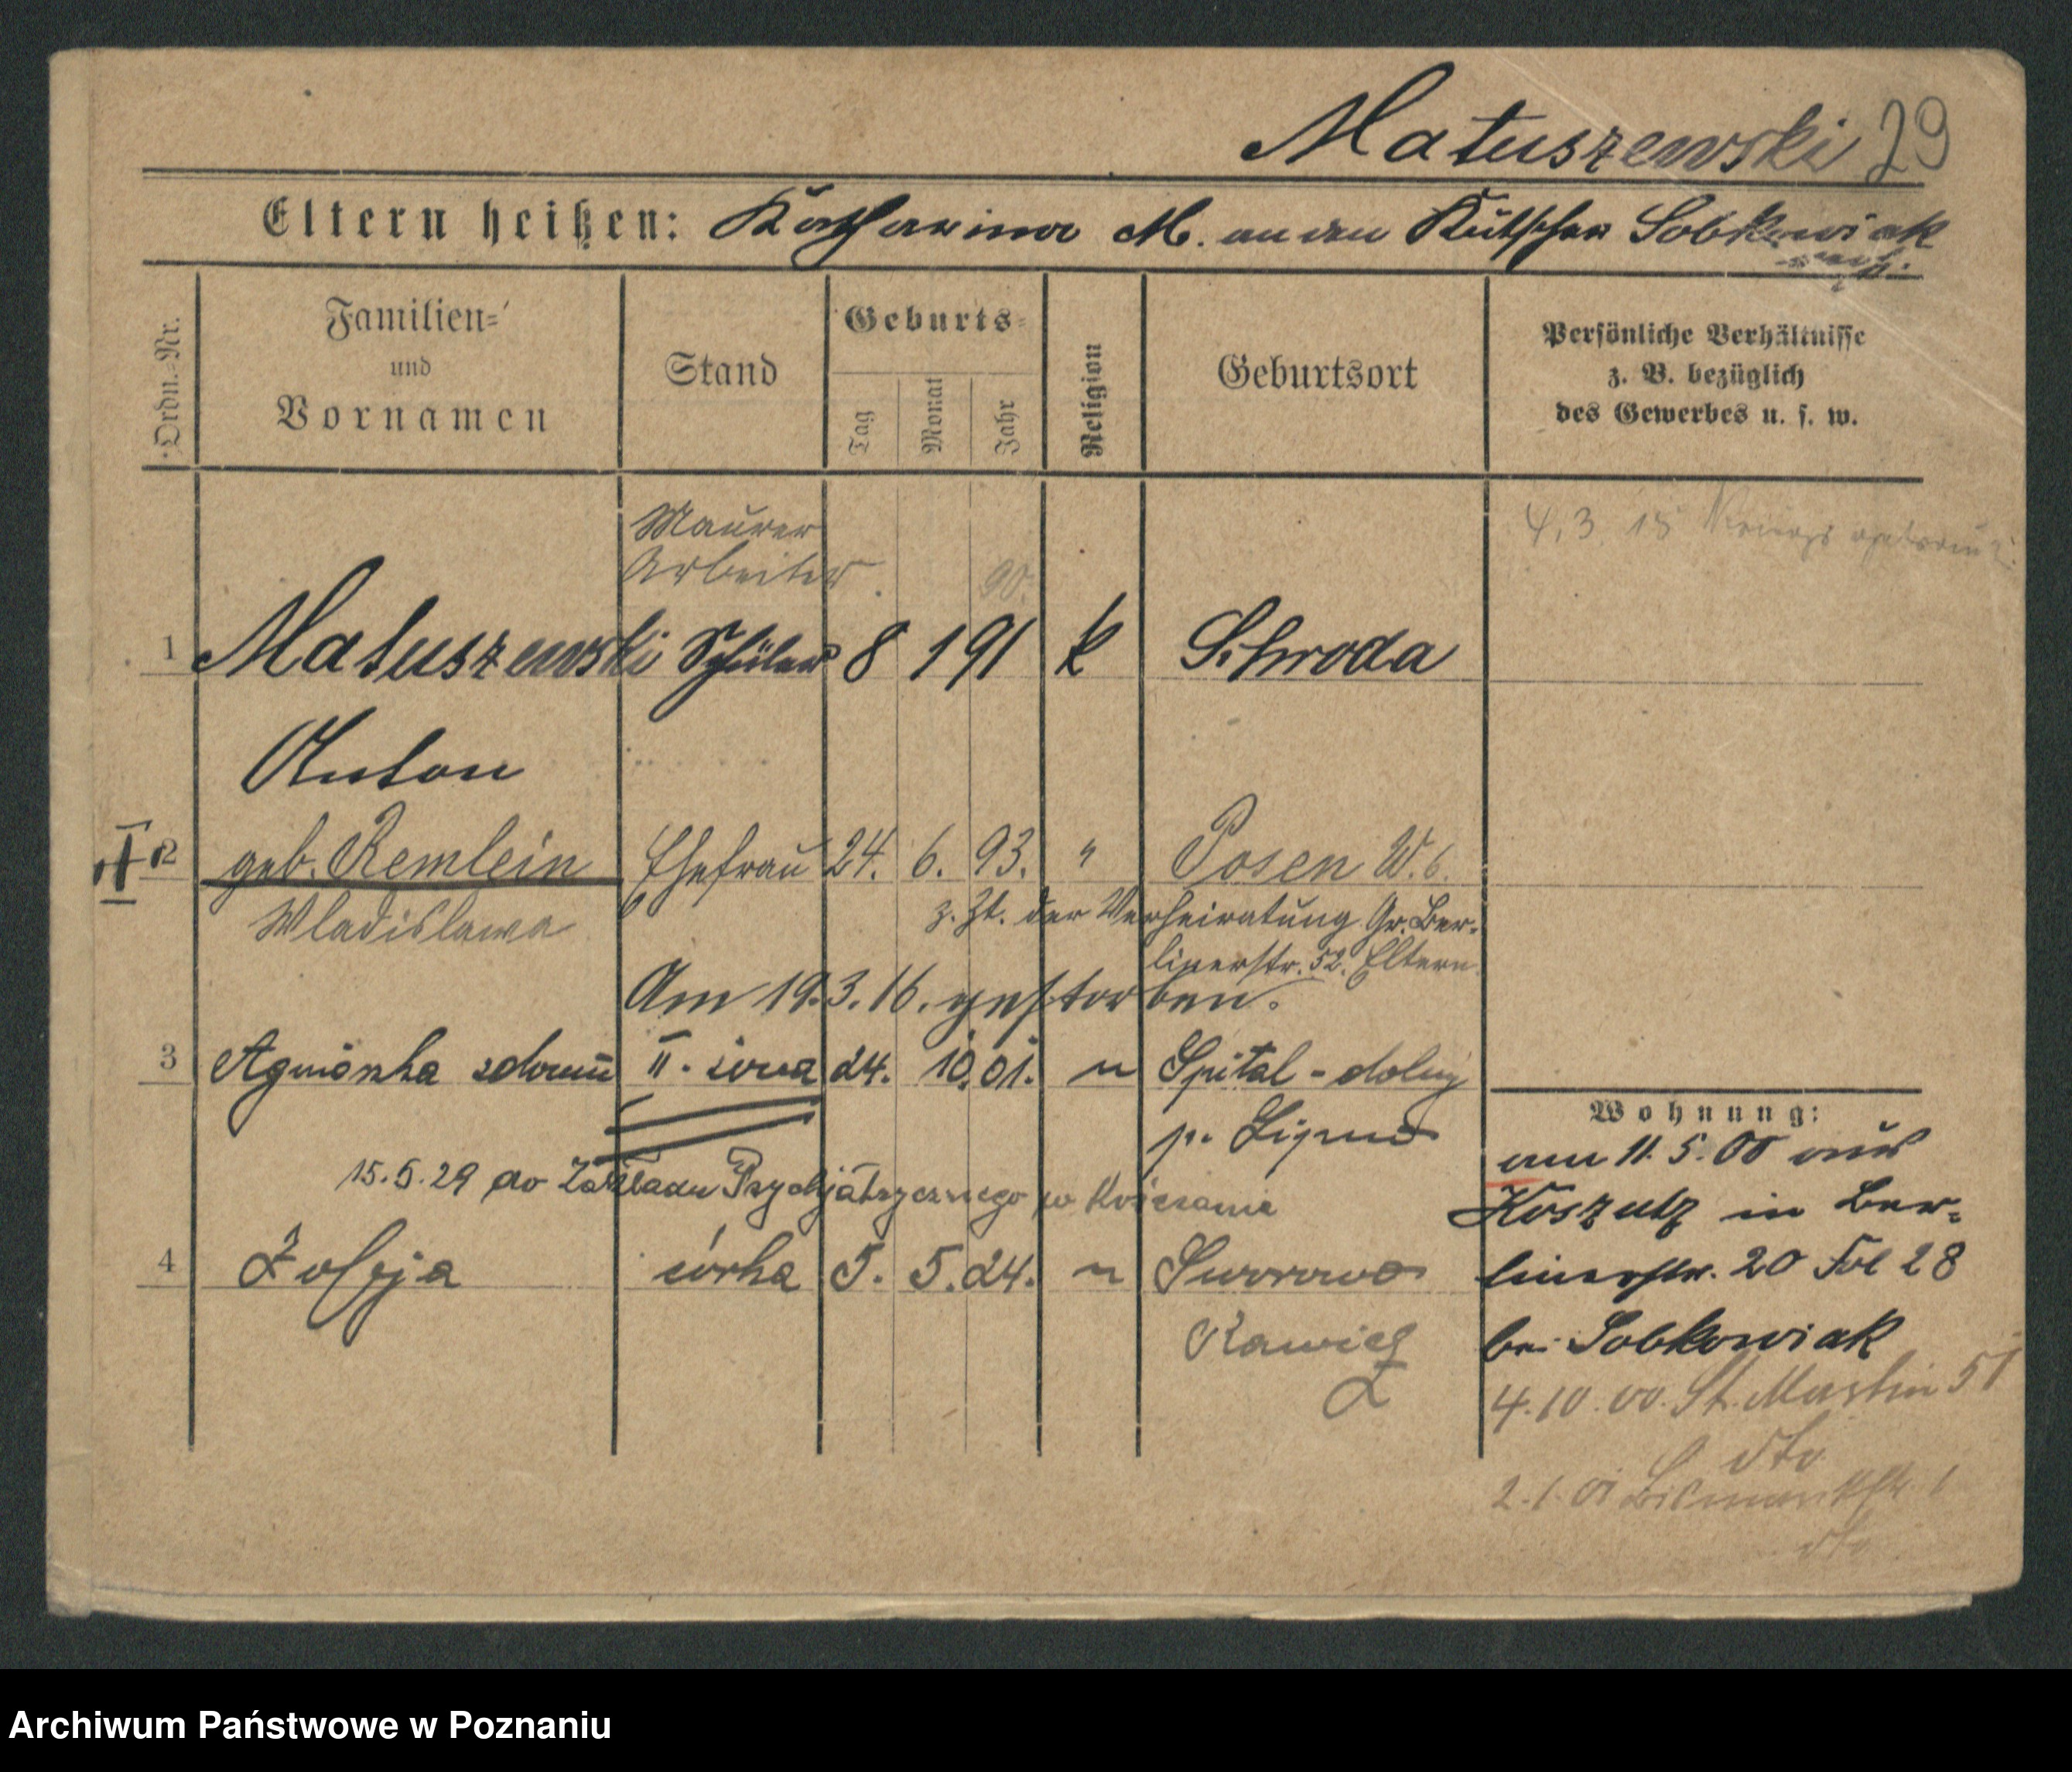 Matuszewski 29
Eltern heißen: Katharina M. an den Kutscher Sobkowiak
verh.
Ordn.-Nr.
Familien=
und
Vornamen
Stand
Geburts=
Tag
Monat
Jahr
Religion
Geburtsort
Persönliche Verhältnisse
z. B. bezüglich
des Gewerbes u. s. w.
4.3.15 Kriegs
Maurer
Arbeiter
90.
1 Matuszewski Schüler 8 1 91 k Schroda
Anton
II 2 geb. Remlein Ehefrau 24. 6. 93. " Posen W.6.
Wladislawa
z. Zt. der Verheiratung Gr. Ber-
linerstr. 52. Eltern
Am 19.3.16. gestorben.
3 Agnieszka II. żona 24. 10. 01. " Szpital-dolny
p. Lipno
15.5.29 do Zakładu Psychjatrycznego w Kościanie
4 Zofja córka 5. 5. 24. "
Rawicz
Wohnung:
am 11.5.00 aus
Koszuty in Ber-
linerstr. 20 Fol 28
bei Sobkowiak
4.10.00. St. Martin 51
dto
2.1.01 Bismarckstr. 1
dto
Archiwum Państwowe w Poznaniu